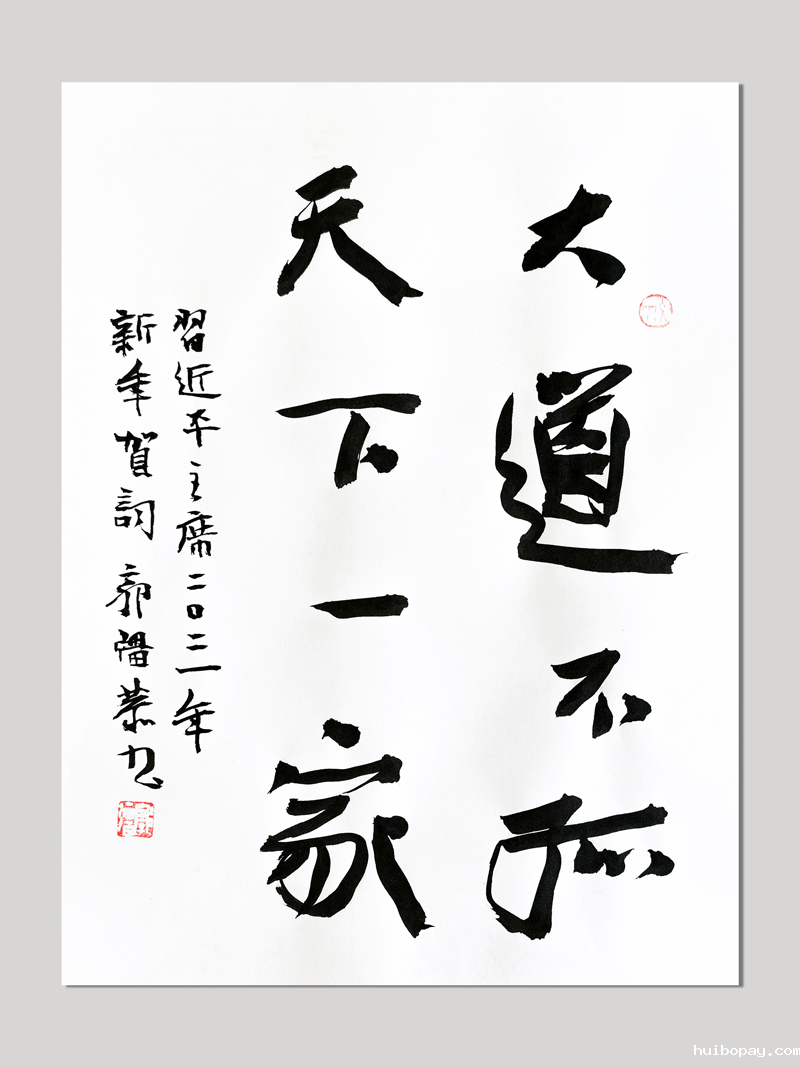 大道不孤
天下一家
習近平主席二〇二一年
新年賀詞 郭 恭书
huibopay.com